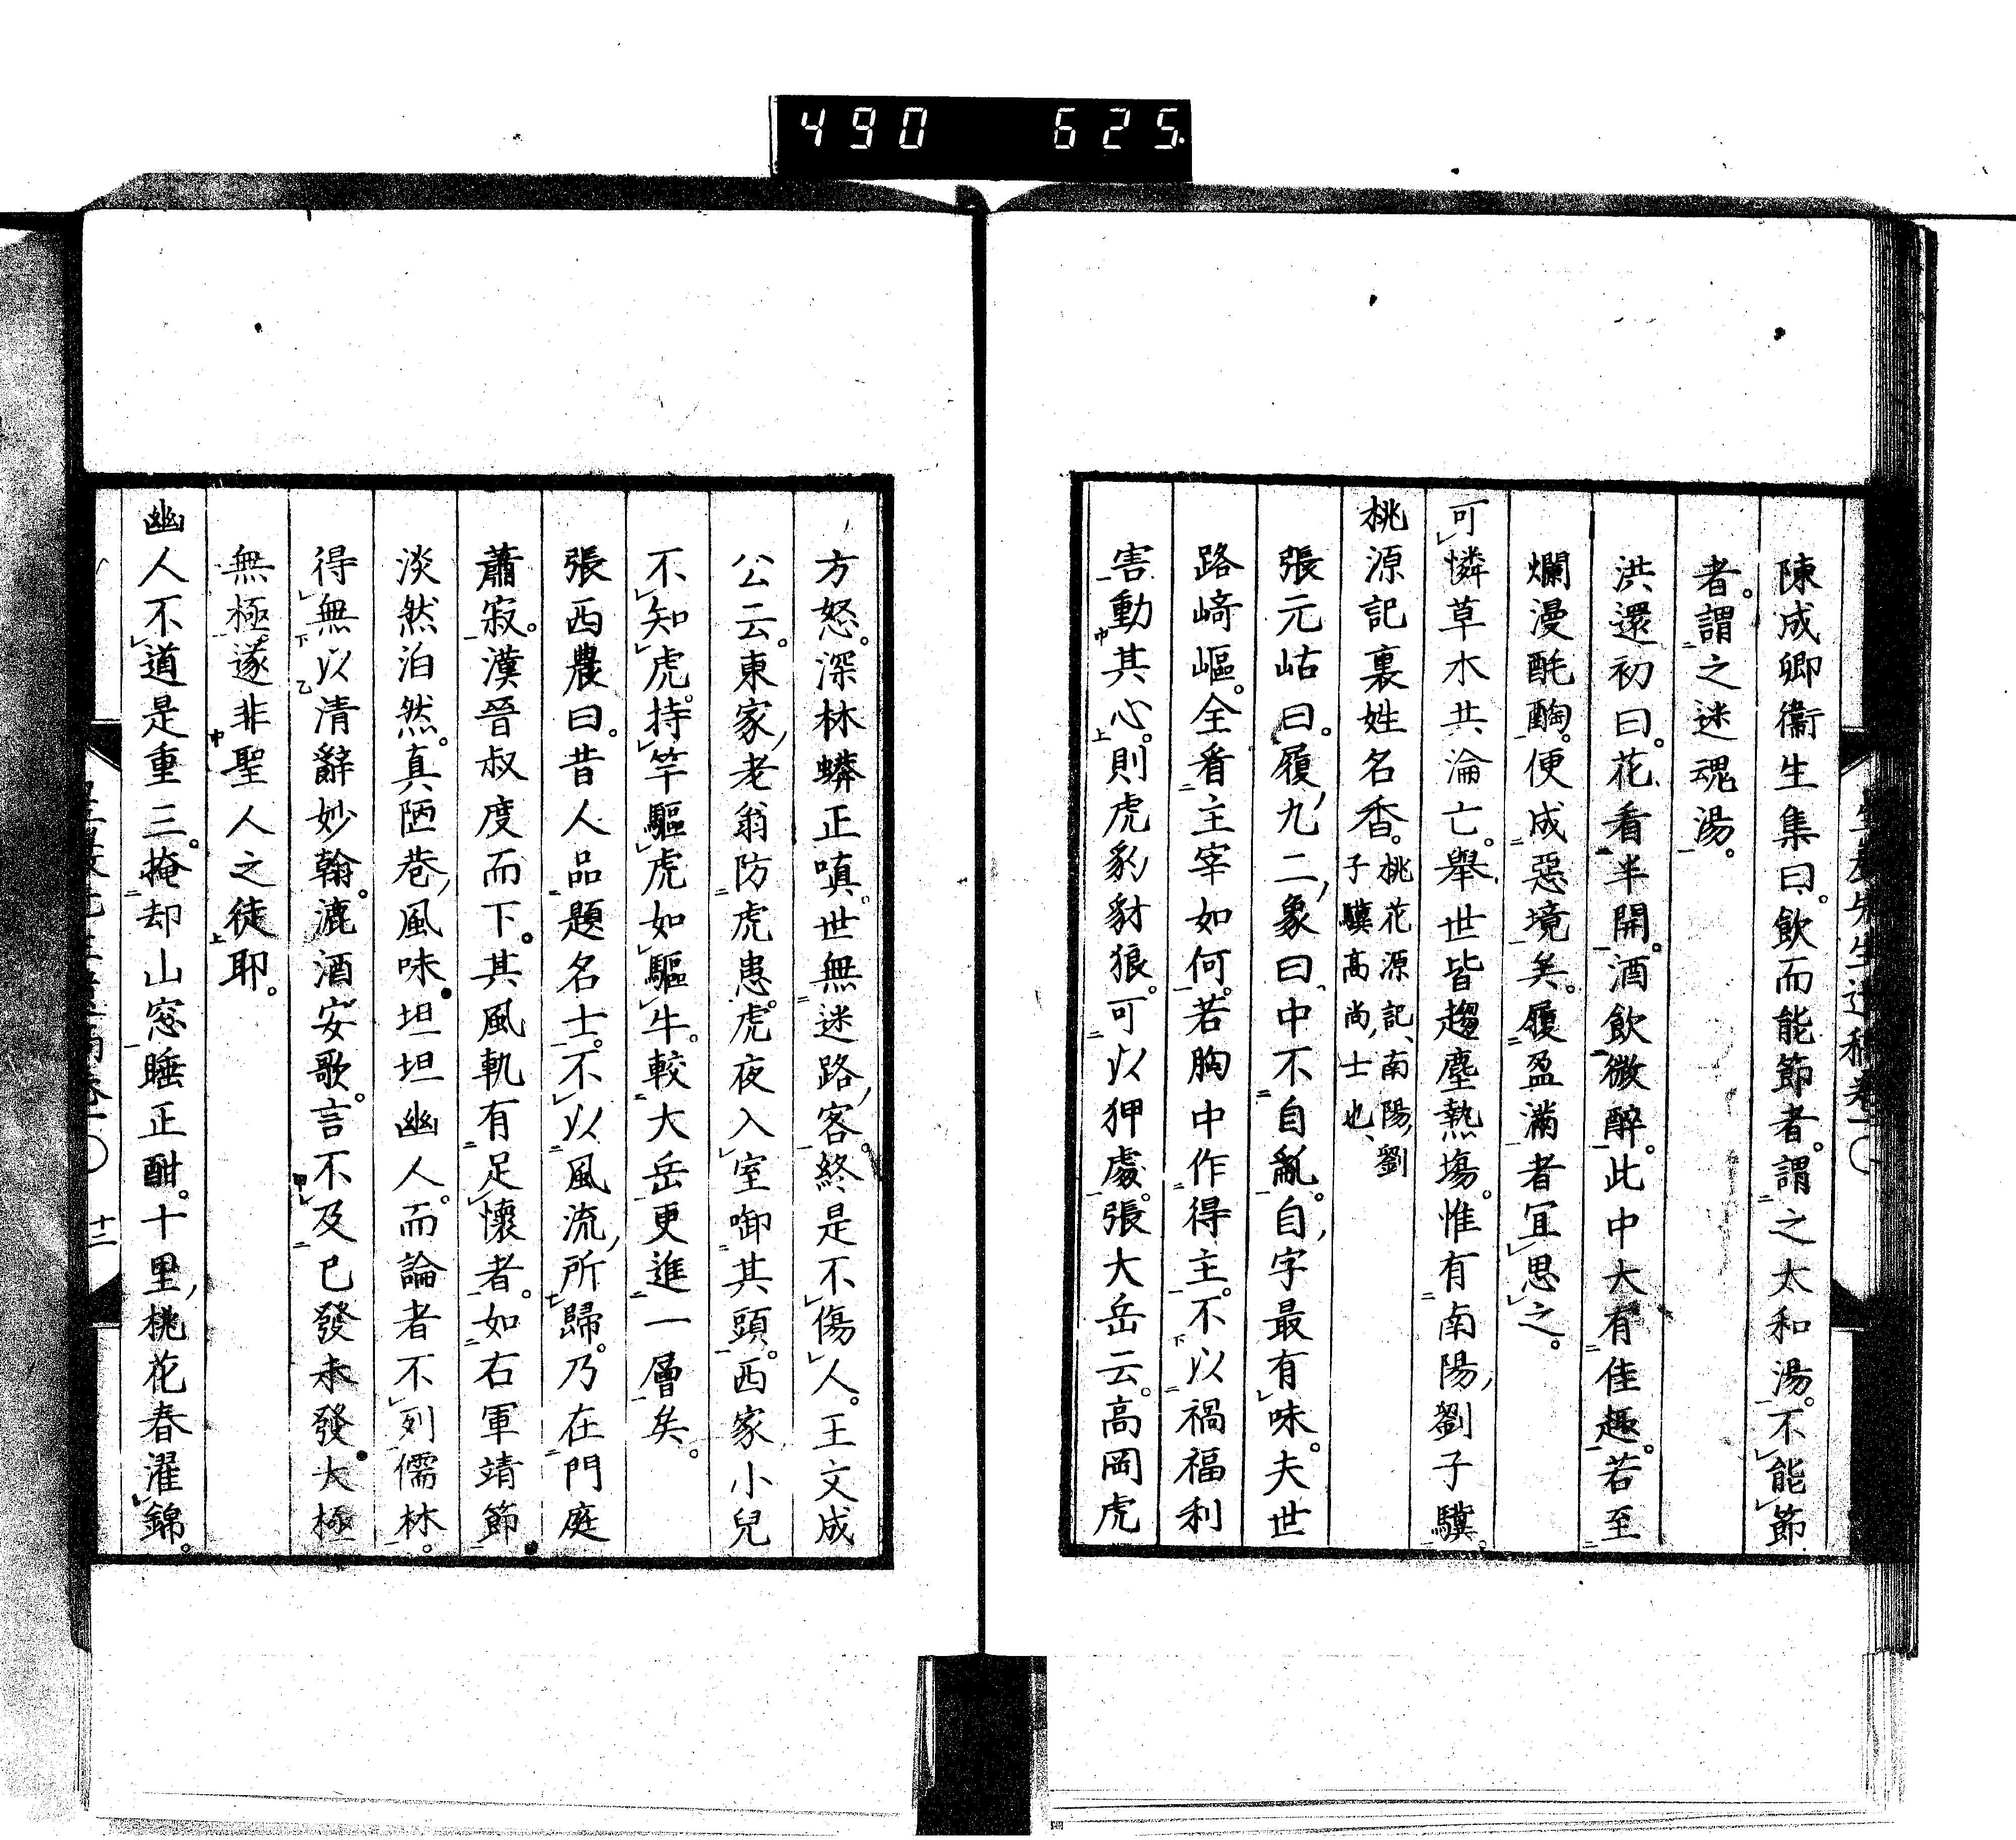 490 625
陳成卿衞生集曰。飲而能節者。謂之太和湯。不能節
者。謂之迷魂湯。
洪還初曰。花看半開。酒飲微醉。此中大有佳趣。若至
爛漫酕醄。便成惡境矣。履盈滿者宜思之。
可憐草木共淪亡。舉世皆趨塵熱場。惟有南陽劉子驥。
桃源記裏姓名香。桃花源記、南陽劉
子驥高尚士也、
張元岵曰。履九二象曰、中不自亂。自字最有味。夫世
路崎嶇。全看主宰如何。若胸中作得主。不以禍福利
害動其心。則虎豹豺狼。可以狎處。張大岳云。高岡虎
方怒。深林蟒正嗔。世無迷路客。終是不傷人。王文成
公云。東家老翁防虎患。虎夜入室啣其頭。西家小兒
不知虎。持竿驅虎如驅牛。較大岳更進一層矣。
張西農曰。昔人品題名士。不以風流所歸。乃在門庭
蕭寂。漢晉叔度而下。其風軌有足懷者。如右軍靖節
淡然泊然。真陋巷風味。坦坦幽人。而論者不列儒林。
得無以清辭妙翰。漉酒安歌。言不及已發未發。大極
無極。遂非聖人之徒耶。
幽人不道是重三。掩却山窓睡正酣。十里桃花春濯錦。
十二